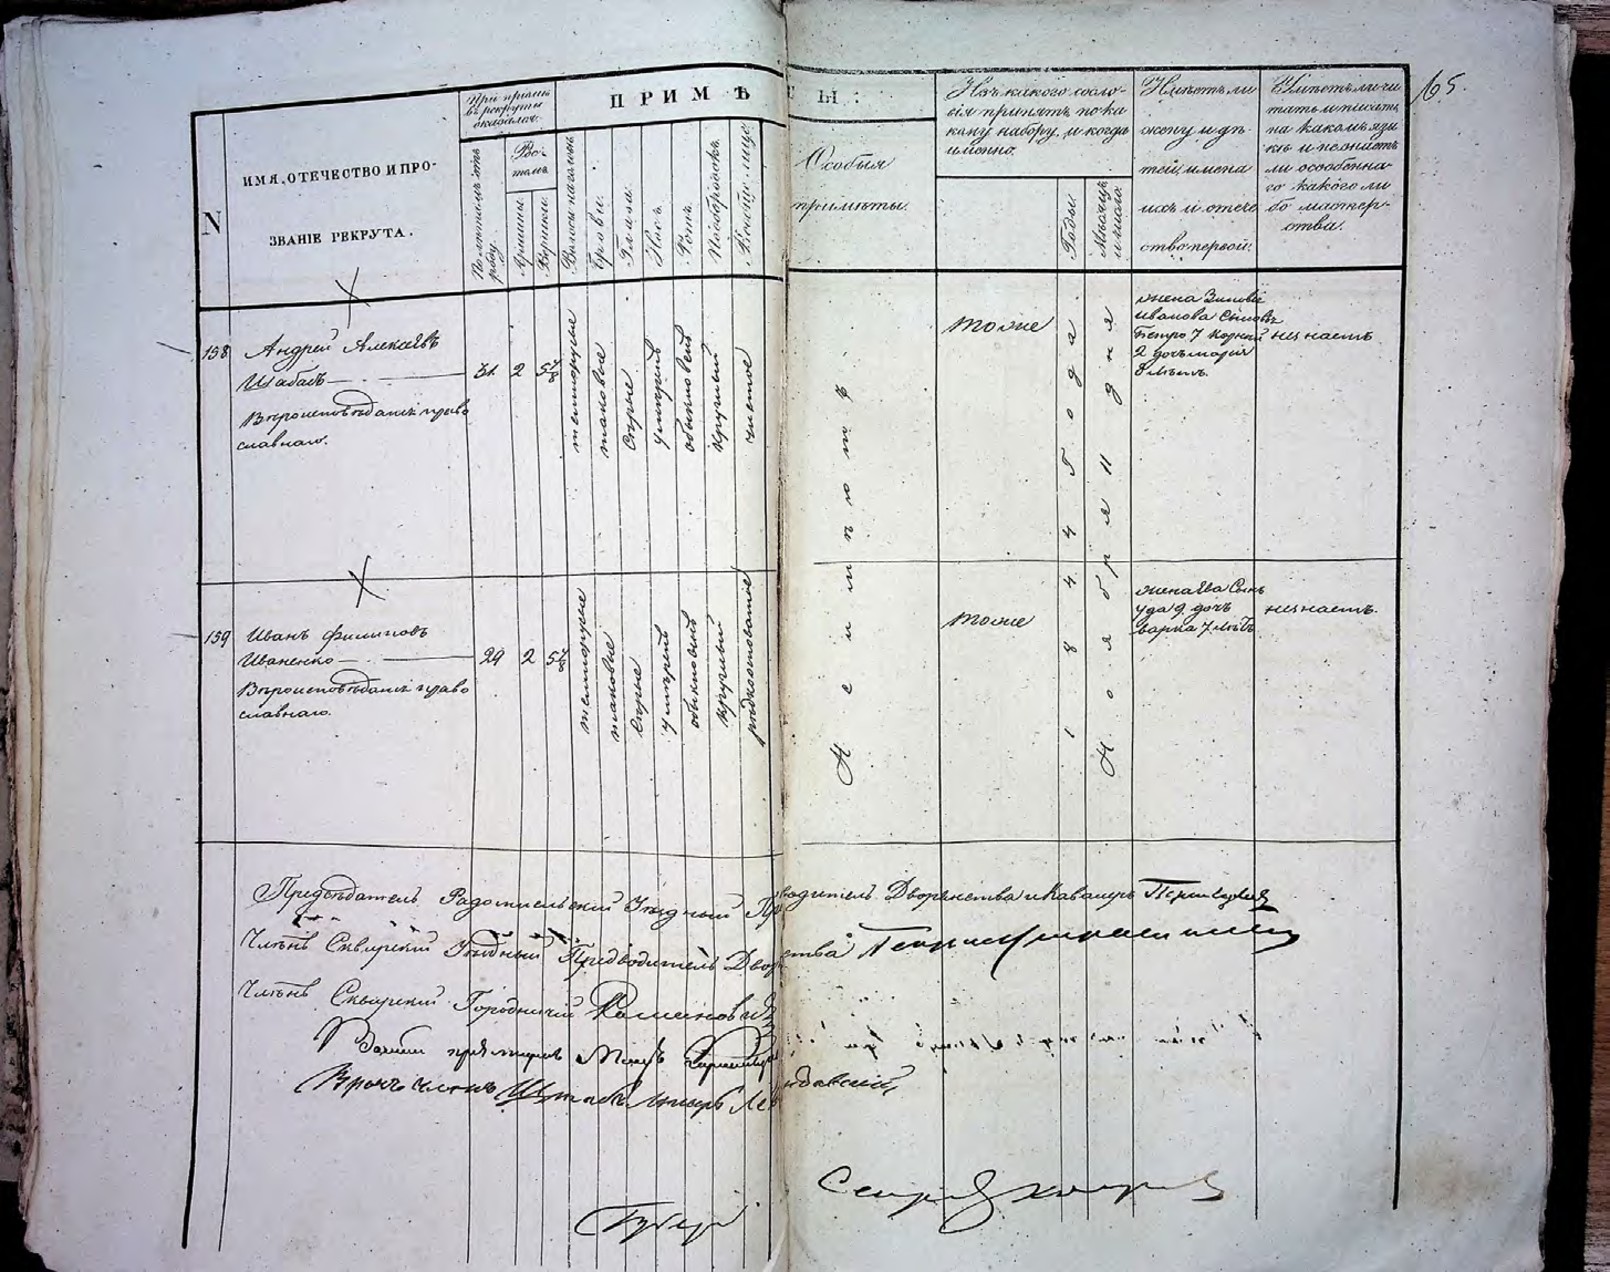 165.
N
ИМЯ, ОТЕЧЕСТВО И ПРО-
ЗВАНІЕ РЕКРУТА.
При пріемѣ
въ рекруты
оказался:
По лѣтамъ отъ
роду.
Ро-
стомъ
Аршины.
Вершки.
ПРИМѢТЫ:
Волосы на головѣ
Брови.
Глаза.
Носъ.
Ротъ.
Подбородокъ.
Вообще лице
Особыя
примѣты.
Изъ какого сосло-
вія принятъ по ка
кому набору, и когда
именно.
Годы.
Мѣсяцъ
и число
Имѣетъ ли
жену и дѣ-
тей, имена
ихъ и отече
ство первой.
Умѣетъ ли чи
тать и писать,
на какомъ язы
кѣ и незнаетъ
ли особенна-
го какого ли
бо мастер-
ства.
158
Андрей Алексѣевъ
Шабасъ
Вѣроисповѣданія право
славнаго.
31.
2
5 7/8
темнорусые
таковые
Сѣрые
умѣренъ
обыкновенъ
круглый
чистое
Неимѣютъ
тоже
1844 Года
Ноября 11 дня
жена Зиновіе
иванова Сыновъ
Петро 7
2 дочь марія
8 лѣтъ.
незнаетъ
159
Иванъ филиповъ
Иваненко
Вѣроисповѣданія право
славнаго.
29
2
5 7/8
темнорусые
таковые
Сѣрые
умѣренъ
обыкновенъ
круглый
тоже
жена Ева Сынъ
9, дочь
варка 7 лѣтъ
незнаетъ.
Предсѣдатель Радомысльскій Уѣздный Предводитель Дворянства и Кавалеръ
Члѣнъ Сквирскій Уѣздный Предводитель Дворянства
Члѣнъ Сквирскій Городничій
Военный пріемщикъ Маіоръ
Врачь члѣнъ Штабъ Лѣкарь